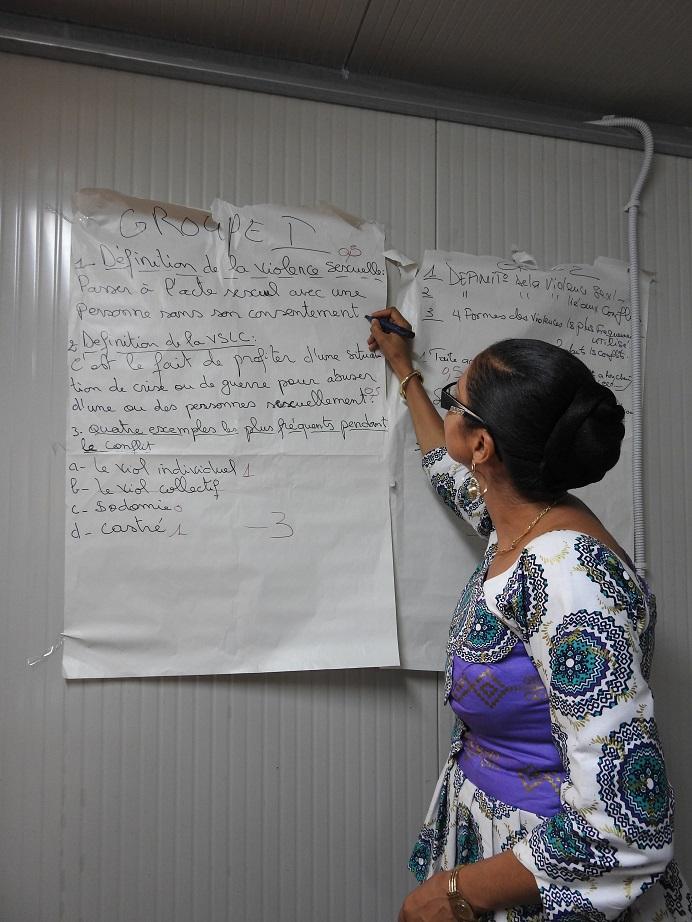 GROUPE I
0,5
1- Définition de la violence sexuelle:
Passer à l'acte sexuel avec une
Personne sans son consentement
2 Définition de la VSLC:
C'est le fait de profiter d'une situa
tion de crise ou de guerre pour abuser
d'une ou des personnes sexuellement 0,5
3. Quatre exemples les plus fréquents pendant
le conflit
a- le viol individuel 1
b- le viol collectif
c- Sodomie 0
d- castré 1
-3
2
1 DEFINITO de la Violence
2 " " " lié aux Confl
3 4 Formes des Violences les plus frequem
utilisé
0,5